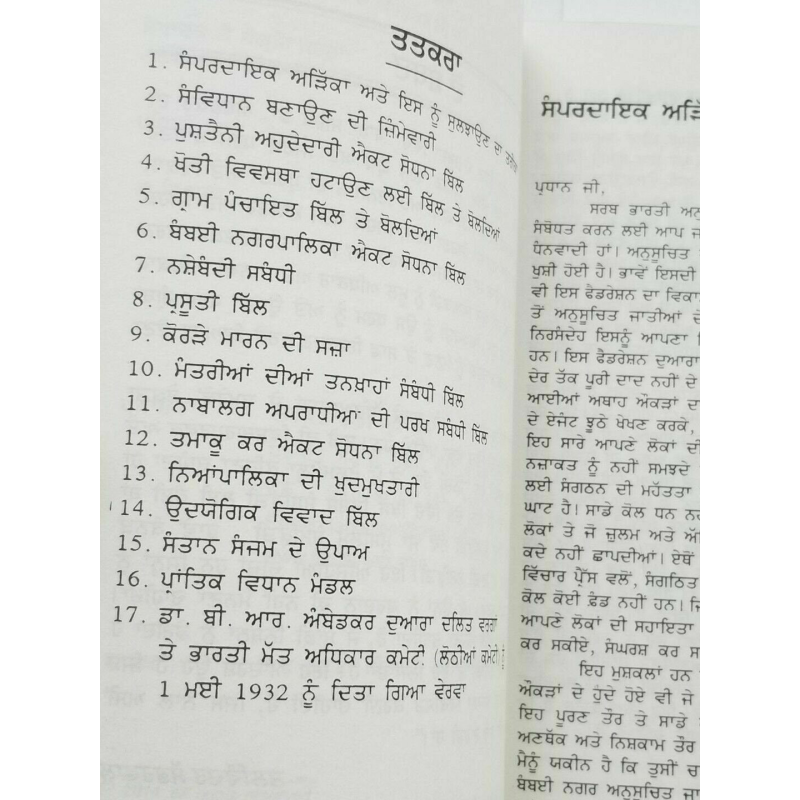 ਤਤਕਰਾ
1. ਸੰਪਰਦਾਇਕ ਅੜਿੱਕਾ ਅਤੇ ਇਸ ਨੂੰ ਸੁਲਝਾਉਣ ਦਾ
2. ਸੰਵਿਧਾਨ ਬਣਾਉਣ ਦੀ ਜ਼ਿੰਮੇਵਾਰੀ
3. ਪੁਸ਼ਤੈਨੀ ਅਹੁਦੇਦਾਰੀ ਐਕਟ ਸੋਧਨਾ ਬਿੱਲ
4. ਖੋਤੀ ਵਿਵਸਥਾ ਹਟਾਉਣ ਲਈ ਬਿੱਲ ਤੇ ਬੋਲਦਿਆਂ
5. ਗ੍ਰਾਮ ਪੰਚਾਇਤ ਬਿੱਲ ਤੇ ਬੋਲਦਿਆਂ
6. ਬੰਬਈ ਨਗਰਪਾਲਿਕਾ ਐਕਟ ਸੋਧਨਾ ਬਿੱਲ
7. ਨਸ਼ੇਬੰਦੀ ਸਬੰਧੀ
8. ਪ੍ਰਸੂਤੀ ਬਿੱਲ
9. ਕੋਰੜੇ ਮਾਰਨ ਦੀ ਸਜ਼ਾ
10. ਮੰਤਰੀਆਂ ਦੀਆਂ ਤਨਖ਼ਾਹਾਂ ਸੰਬੰਧੀ ਬਿੱਲ
11. ਨਾਬਾਲਗ ਅਪਰਾਧੀਆਂ ਦੀ ਪਰਖ ਸਬੰਧੀ ਬਿੱਲ
12. ਤਮਾਕੂ ਕਰ ਐਕਟ ਸੋਧਨਾ ਬਿੱਲ
13. ਨਿਆਂਪਾਲਿਕਾ ਦੀ ਖੁਦਮੁਖਤਾਰੀ
14. ਉਦਯੋਗਿਕ ਵਿਵਾਦ ਬਿੱਲ
15. ਸੰਤਾਨ ਸੰਜਮ ਦੇ ਉਪਾਅ
16. ਪ੍ਰਾਂਤਿਕ ਵਿਧਾਨ ਮੰਡਲ
17. ਡਾ. ਬੀ. ਆਰ. ਅੰਬੇਡਕਰ ਦੁਆਰਾ ਦਲਿਤ ਵਰਗਾਂ
ਤੇ ਭਾਰਤੀ ਮੱਤ ਅਧਿਕਾਰ ਕਮੇਟੀ (ਲੋਠੀਆਂ ਕਮੇਟੀ)
1 ਮਈ 1932 ਨੂੰ ਦਿਤਾ ਗਿਆ ਵੇਰਵਾ
ਸੰਪਰਦਾਇਕ
ਪ੍ਰਧਾਨ ਜੀ,
ਸਰਬ ਭਾਰਤੀ
ਸੰਬੋਧਤ ਕਰਨ ਲਈ ਆਪ
ਧੰਨਵਾਦੀ ਹਾਂ। ਅਨੁਸੂਚਿਤ
ਖੁਸ਼ੀ ਹੋਈ ਹੈ। ਭਾਵੇਂ ਇਸਦੀ
ਵੀ ਇਸ ਫੈਡਰੇਸ਼ਨ ਦਾ
ਤੋਂ ਅਨੁਸੂਚਿਤ ਜਾਤੀਆਂ
ਨਿਰਸੰਦੇਹ ਇਸਨੂੰ ਆਪਣਾ
ਹਨ। ਇਸ ਫੈਡਰੇਸ਼ਨ ਦੁਆਰਾ
ਦੇਰ ਤੱਕ ਪੂਰੀ ਦਾਦ ਨਹੀਂ ਦੇ
ਆਈਆਂ ਅਥਾਹ ਔਕੜਾਂ ਦਾ
ਦੇ ਏਜੰਟ ਝੂਠੇ ਖੇਖਣ ਕਰਕੇ,
ਇਹ ਸਾਰੇ ਆਪਣੇ ਲੋਕਾਂ ਦੀ
ਨਜ਼ਾਕਤ ਨੂੰ ਨਹੀਂ ਸਮਝਦੇ
ਲਈ ਸੰਗਠਨ ਦੀ ਮਹੱਤਤਾ
ਘਾਟ ਹੈ। ਸਾਡੇ ਕੋਲ ਧਨ
ਲੋਕਾਂ ਤੇ ਜੋ ਜ਼ੁਲਮ ਅਤੇ
ਕਦੇ ਨਹੀਂ ਛਾਪਦੀਆਂ। ਏਥੋਂ
ਵਿੱਚਾਰ ਪ੍ਰੈੱਸ ਵਲੋਂ, ਸੰਗਠਿਤ
ਕੋਲ ਕੋਈ ਫ਼ੰਡ ਨਹੀਂ ਹਨ।
ਆਪਣੇ ਲੋਕਾਂ ਦੀ ਸਹਾਇਤਾ
ਕਰ ਸਕੀਏ, ਸੰਘਰਸ਼ ਕਰ
ਇਹ ਮੁਸ਼ਕਲਾਂ ਹਨ
ਔਕੜਾਂ ਦੇ ਹੁੰਦੇ ਹੋਏ ਵੀ ਜੇ
ਇਹ ਪੂਰਣ ਤੌਰ ਤੇ ਸਾਡੇ
ਅਣਥੱਕ ਅਤੇ ਨਿਸ਼ਕਾਮ ਤੌਰ
ਮੈਨੂੰ ਯਕੀਨ ਹੈ ਕਿ ਤੁਸੀਂ
ਬੰਬਈ ਨਗਰ ਅਨੁਸੂਚਿਤ